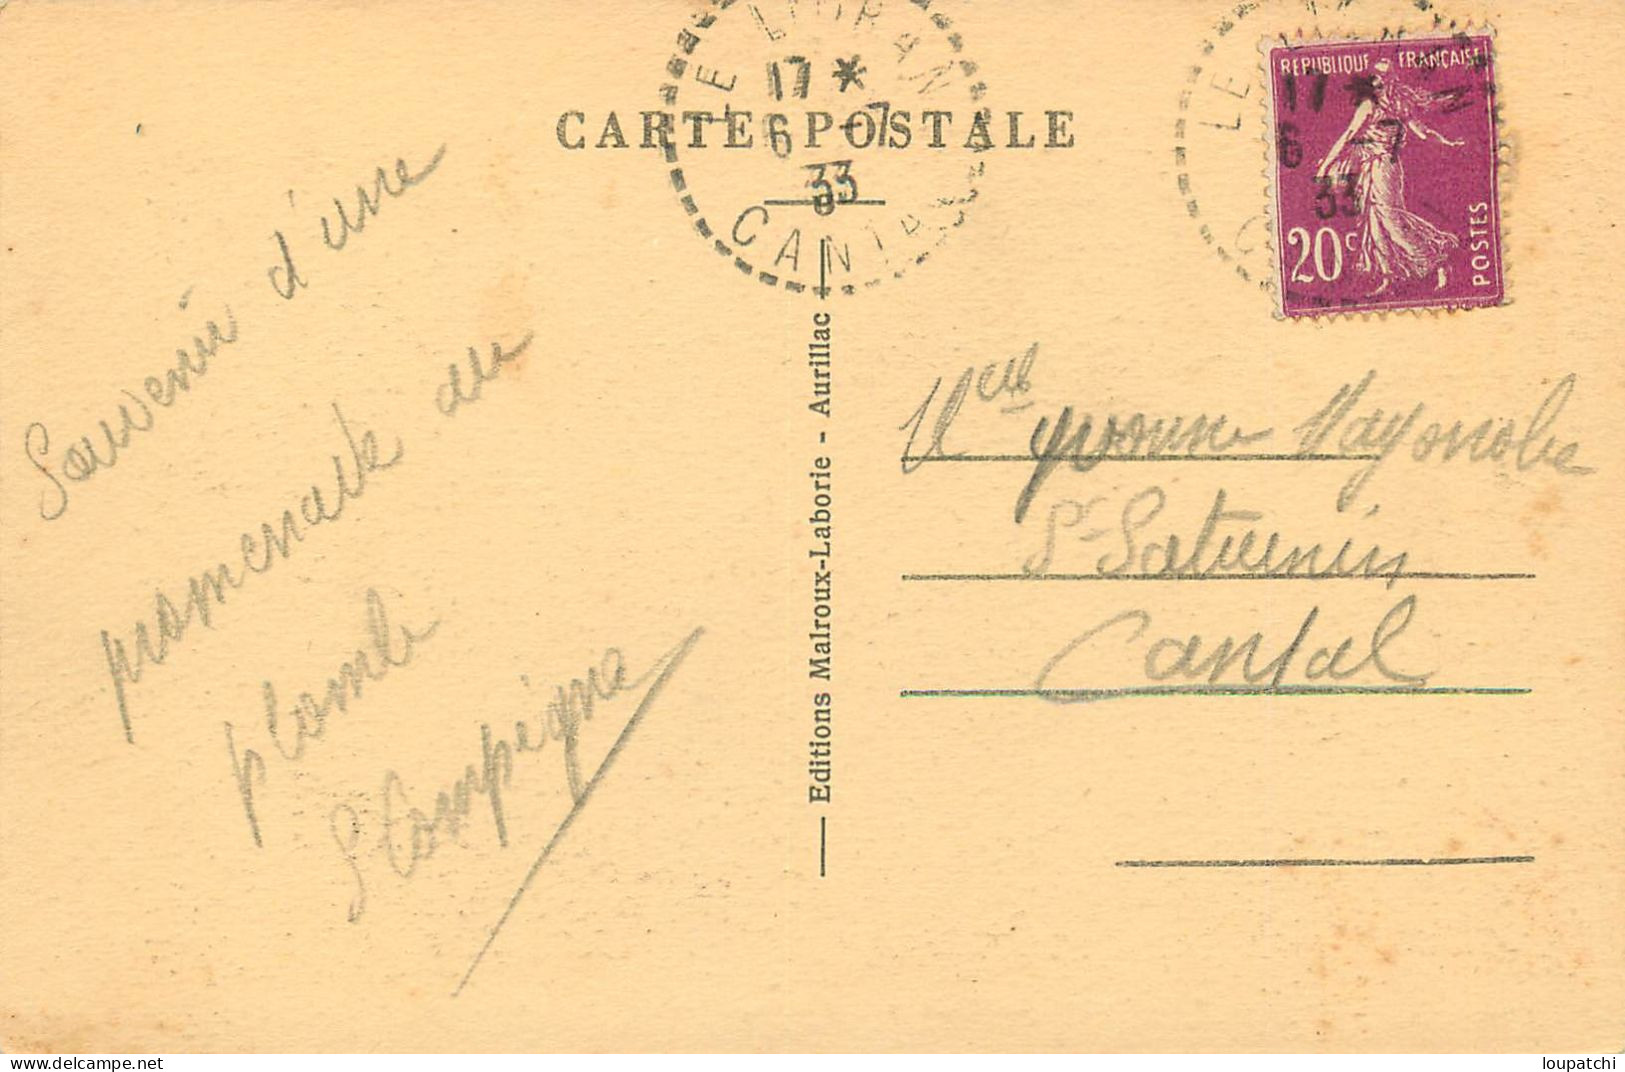 LE LIORAN
17 *
6 -7
33
CANTAL
CARTE POSTALE
LE LIORAN
17 *
6 -7
33
REPUBLIQUE FRANÇAISE
20 c
POSTES
Souvenir d'une
promenade au
plomb
Editions Malroux-Laborie - Aurillac
Melle Yvonne
St Saturnin
Cantal
www.delcampe.net
loupatchi